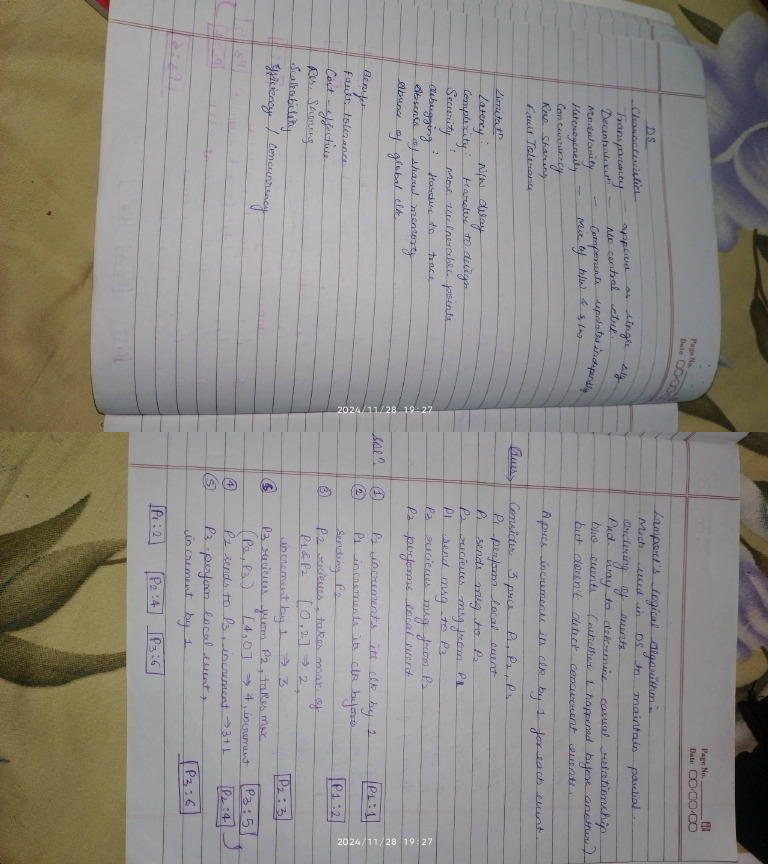 Page No.
Date
DS
Characteristics
Transparency - appears as single sys
Decentralizatn - No central ctrl.
Modularity - Components updates independly
Heterogeneity - Mix of h/w & s/w
Concurrency
Res. Sharing
Fault Tolerance
Limitatn
Latency : N/w delay
Complexity : Harder to design
Security : More vulnerable points
Debugging : Harder to trace
Absence of shared memory
Absence of global clk
Benefit
Fault tolerance
Cost-effective
Res. Sharing
Scalability
Efficiency / Concurrency
2024/11/28 19:27
Page No.
Date
Lamport's Logical Algorithm:-
Mech used in DS to maintain partial
ordering of events
Prvd way to determine casual relationship
btw events (whether 1 happened before another)
but doesn't detect concurrent events.
Apues increment in clk by 1 for each event.
Ques> Consider 3 prcs P1, P2, P3
P1 perform local event
P1 sends msg to P2
P2 recieves msg from P1
P2 send msg to P3
P3 recieves msg from P2
P3 performs local event
Solⁿ. ① P1 increments its clk by 1 P1:1
② P1 increments its clk before
sending P2 P1:2
③ P2 recieves, takes max of
P1 & P2 [0,2] → 2,
increment by 1 → 3 P2:3
⑤ P3 recieves from P2, takes max
(P2,P3) [4,0] → 4, increment P3:5
④ P2 sends to P3, increment → 3+1 P2:4
⑤ P3, perform local event,
increment by 1 P3:6
P1:2 P2:4 P3:6
2024/11/28 19:27